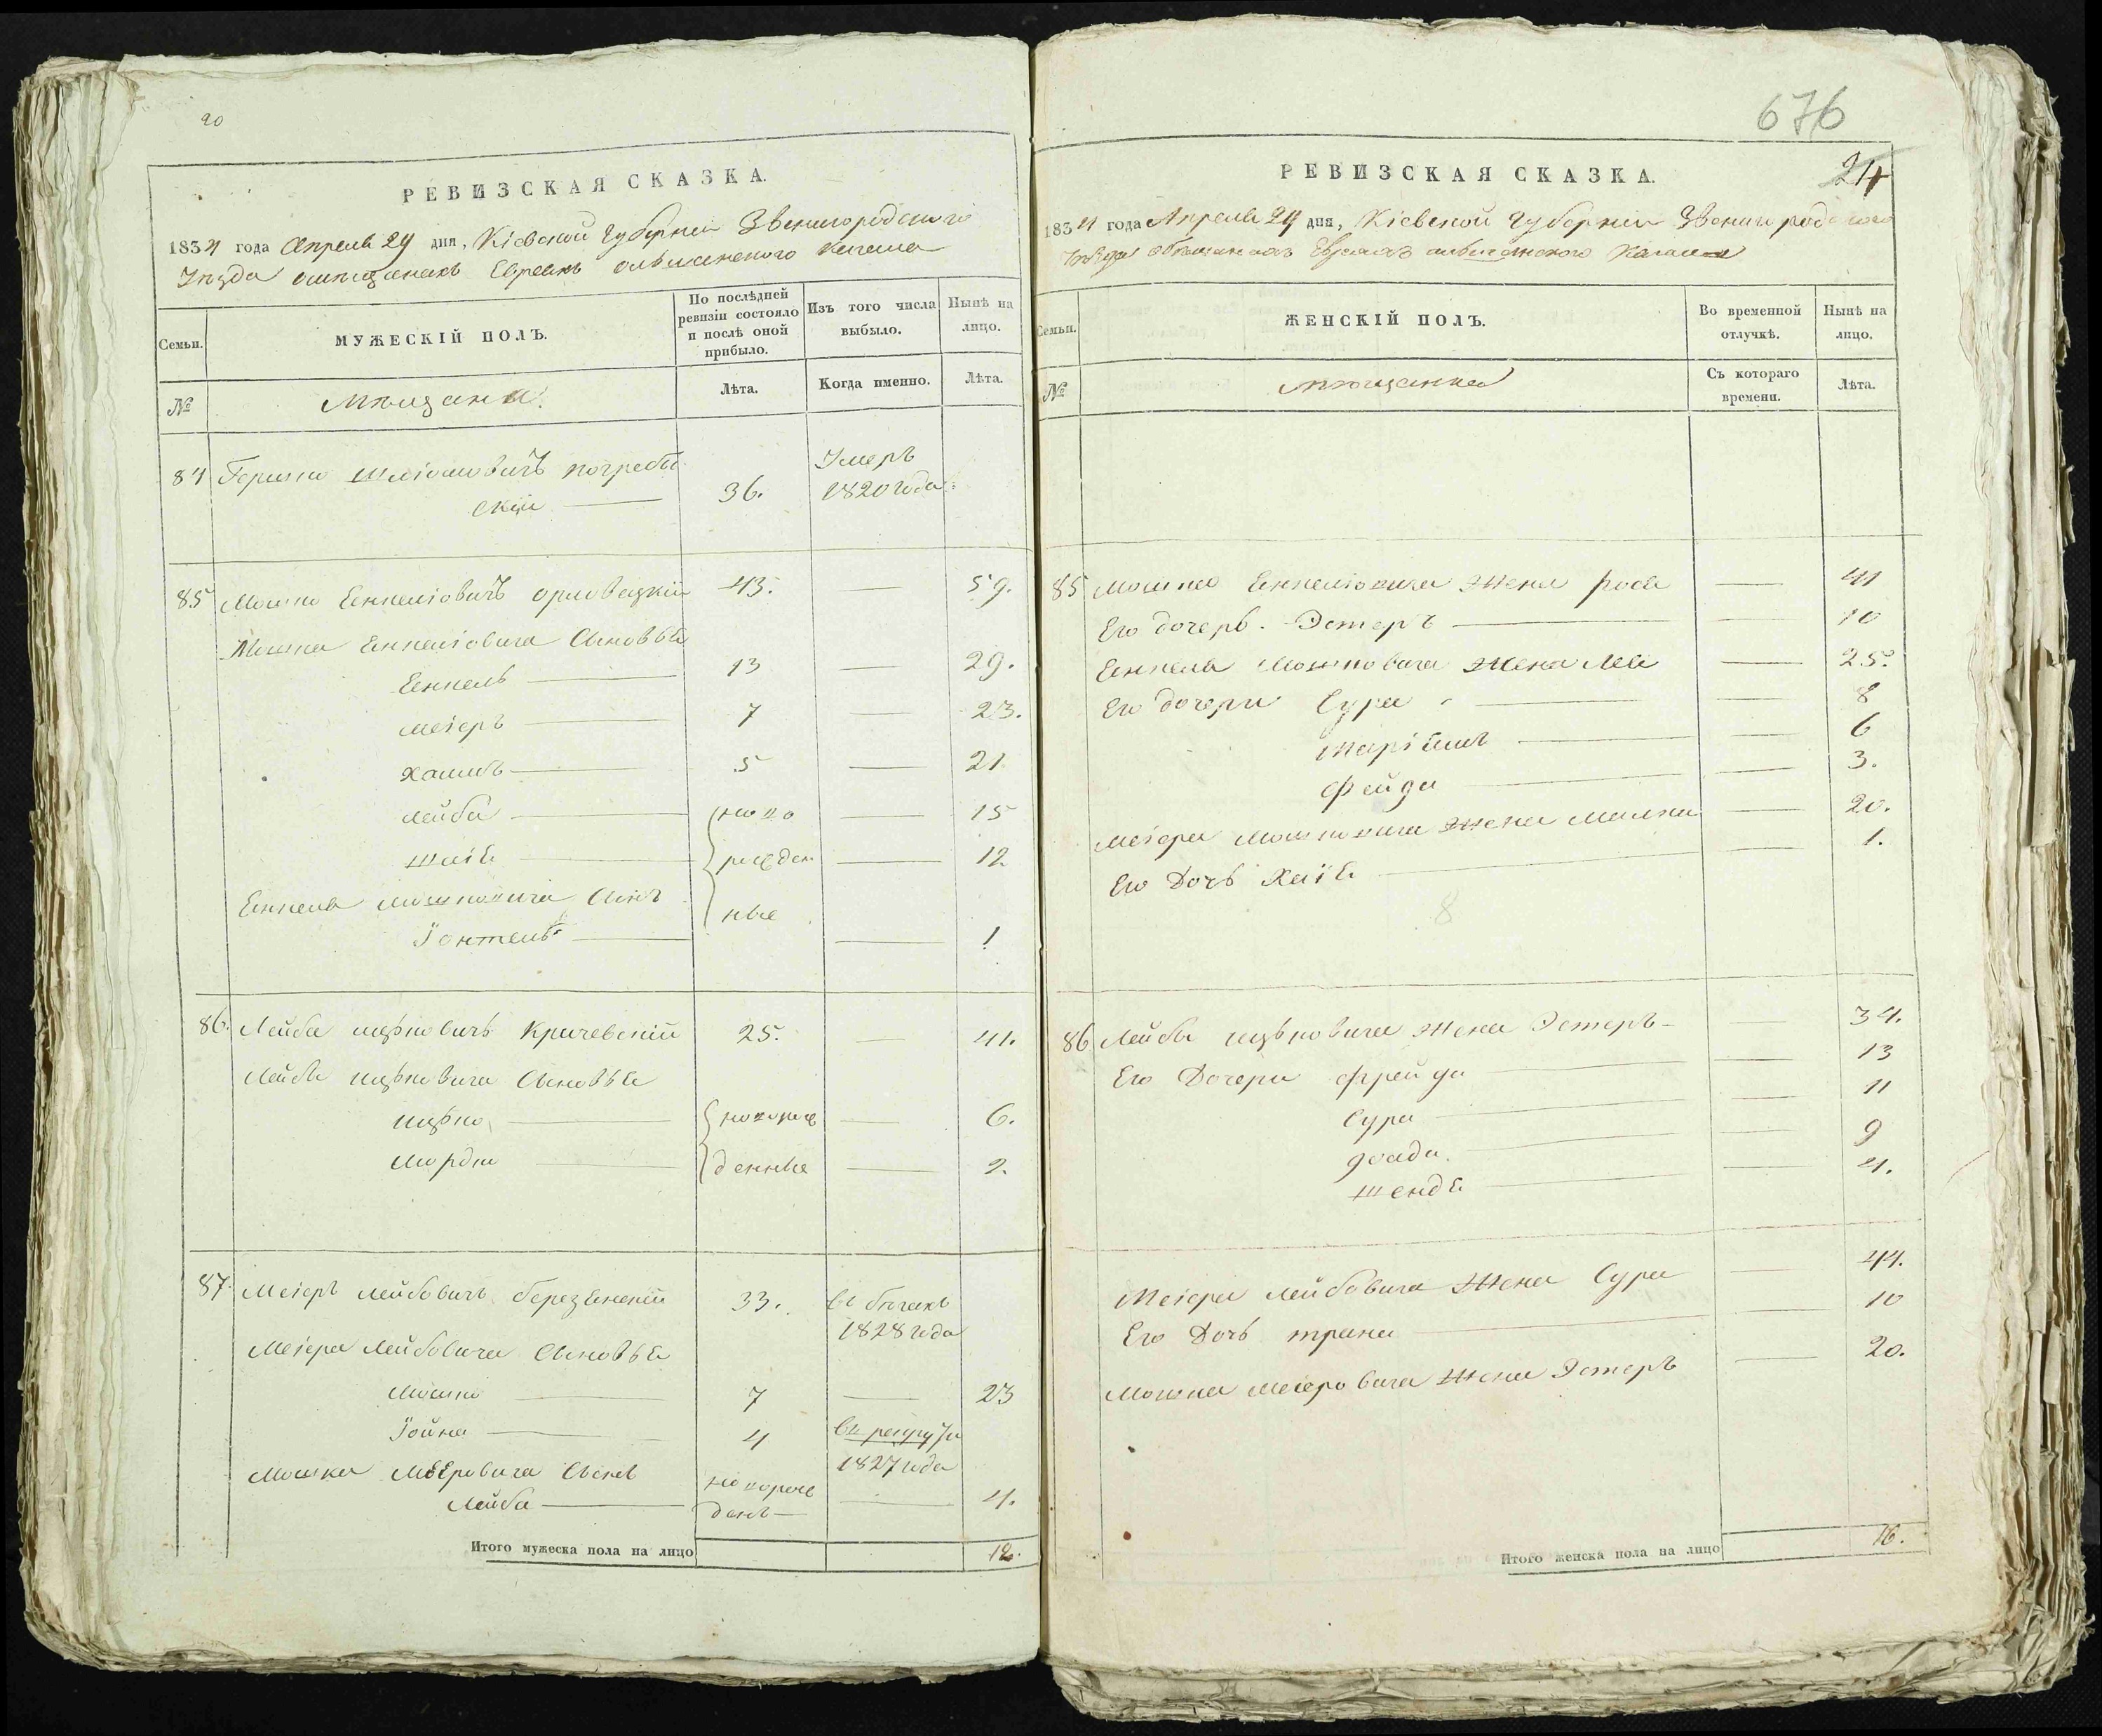 20
РЕВИЗСКАЯ СКАЗКА.
1834 года Апреля 24 дня, Кіевской Губерніи Звенигородского
Уѣзда омѣщанахъ Евреяхъ ольшанского Кагала
Семьи.
МУЖЕСКІЙ ПОЛЪ.
По послѣдней ревизіи состояло и послѣ оной прибыло.
Изъ того числа выбыло.
Нынѣ на лицо.
№
Мѣщани
Лѣта.
Когда именно.
Лѣта.
84 Гершко Шліомовичъ погребы
скій 36. Умеръ 1820 года
85 Мошко Еннеліовичъ орловецкій 43. 59.
Мошка Еннеліовича Сыновья
Еннель 13 29.
Меіеръ 7 23.
Хаимъ 5 21
Лейба ново 15
Шаія рожден 12
Еннеля Мошковича Сынъ ные
Іонтель 1
86. Лейба ицковичъ Кричевскій 25. 41.
Лейбы ицковича Сыновья
ицко новорож 6.
Мордко денные 2.
87. Меіеръ Лейбовичъ березянскій 33. въ бѣгахъ
1828 года
Меіера Лейбовича Сыновья
Мошко 7 23
Іойна 4 въ рекруты
1827 года
Мошка Меѣровича Сынъ новорож
Лейба денъ 4.
Итого мужеска пола на лицо 12.
676
24
РЕВИЗСКАЯ СКАЗКА.
1834 года Апреля 24 дня, Кіевской Губерніи Звенигородского
Уѣзда обмѣщанахъ Евреяхъ ольшанского Кагала
Семьи.
ЖЕНСКІЙ ПОЛЪ.
Во временной отлучкѣ.
Нынѣ на лицо.
№
мѣщанки
Съ котораго времени.
Лѣта.
85 Мошка Еннеліовича жена роса 41
Его дочерь. Эстеръ 10
Еннеля Мошковича жена Лея 25.
Его дочери Сура 8
Маріямъ 6
Фейга 3.
Меіера Мошковича жена Малка 20.
Его Дочь Хаія 1.
8
86 Лейбы ицковича жена Эстеръ 34.
Его Дочери Фрейда 13
Сура 11
9
Шендя 4.
Меіера Лейбовича жена Сура 44.
Его Дочь 10
Мошка Меіеровича жена Эстеръ 20.
Итого женска пола на лицо 16.